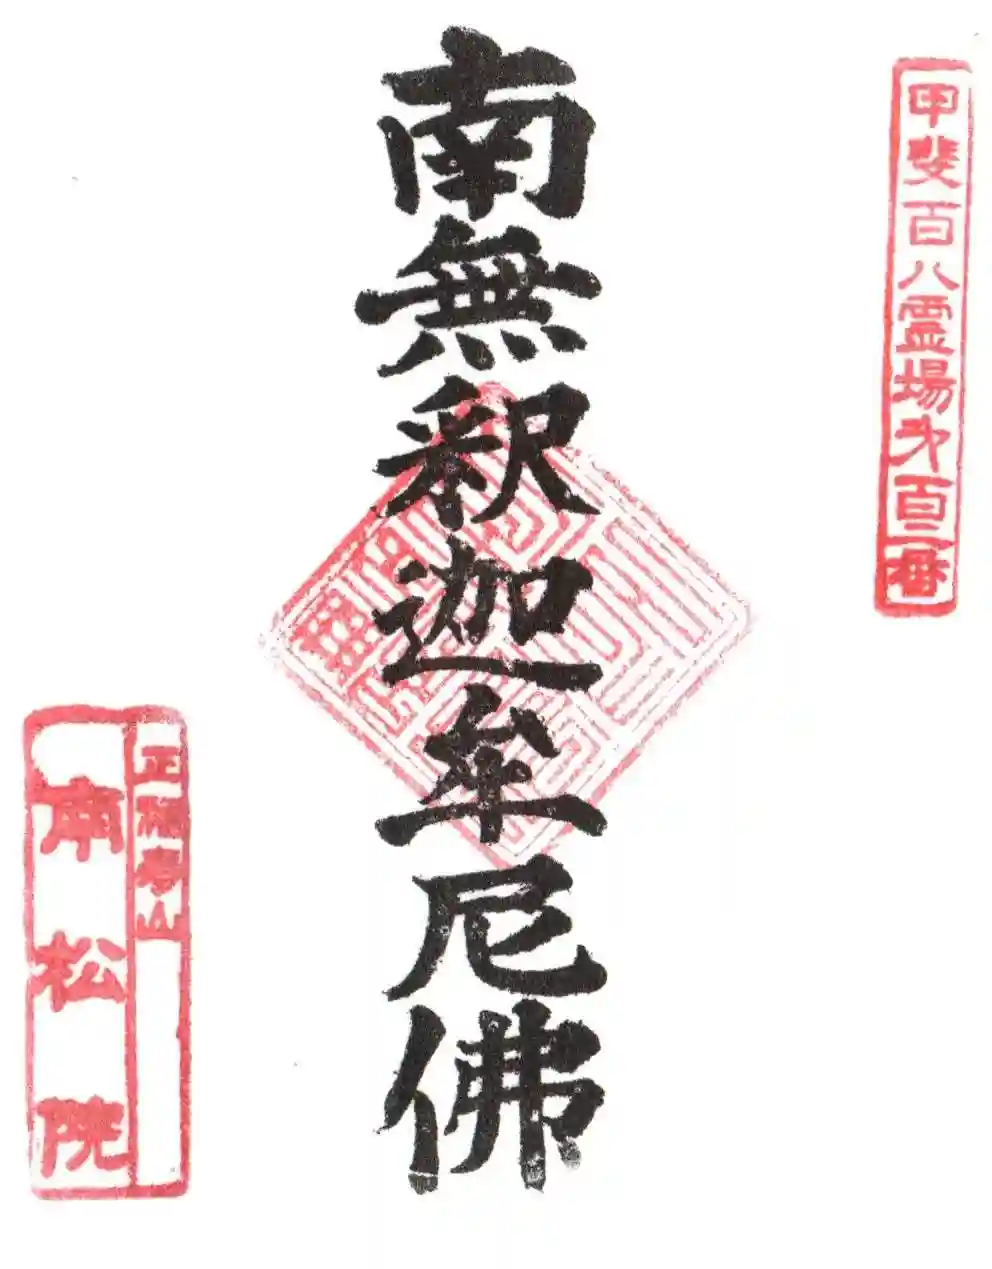 甲斐百八霊場第百二番
南無釈迦牟尼佛
正福壽山
南松院